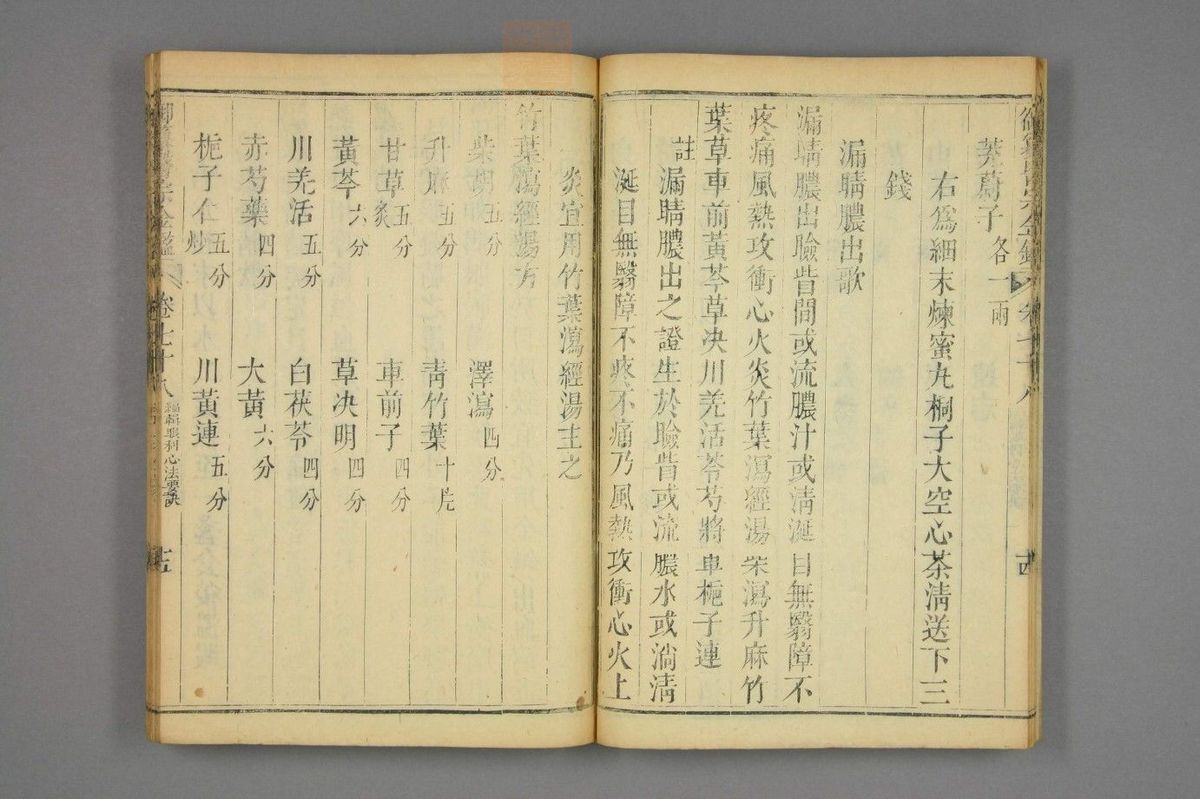 茺蔚子各一兩
右爲細末煉蜜丸桐子大空心茶淸送下三
錢
漏睛膿出歌
漏睛膿出瞼眥間或流膿汁或淸涎目無翳障不
疼痛風熱攻衝心火炎竹葉瀉經湯柴瀉升麻竹
葉草車前黃芩草決川羌活苓芍將軍梔子連
註漏睛膿出之證生於瞼眥或流膿水或淌淸
涎目無翳障不疼不痛乃風熱攻衝心火上
炎宜用竹葉瀉經湯主之
竹葉瀉經湯方
柴胡五分 澤瀉四分
升麻五分 靑竹葉十片
甘草炙五分 車前子四分
黃芩六分 草決明四分
川羌活五分 白茯苓四分
赤芍藥四分 大黃六分
梔子仁炒五分 川黃連五分
御纂醫宗金鑑 卷七十八 編輯眼科心法要訣 十五